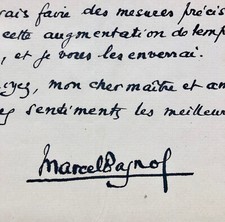 rais faire des mesures précis
cette augmentation de temp
, et je vous les enverrai.
oyez, mon cher maître et am
es sentiments les meilleur
Marcel Pagnol